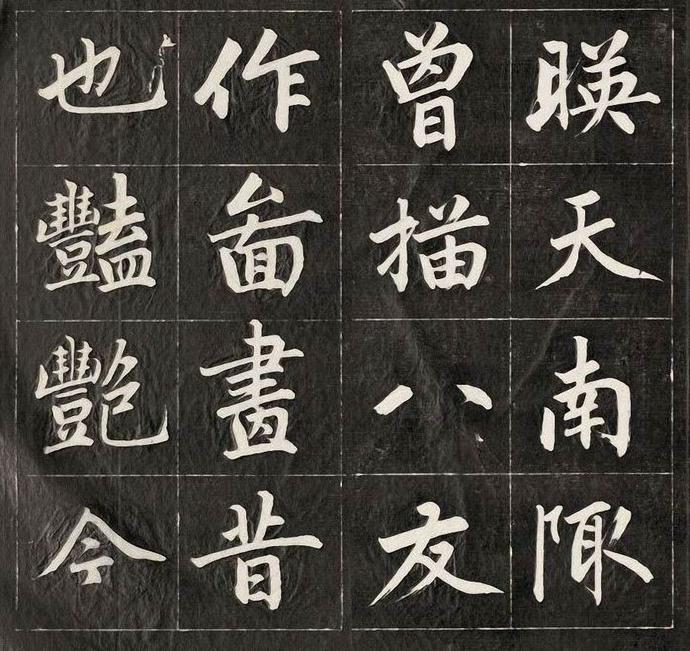 暎天南陬
曾描八友
作啚畫昔
也豔艷今